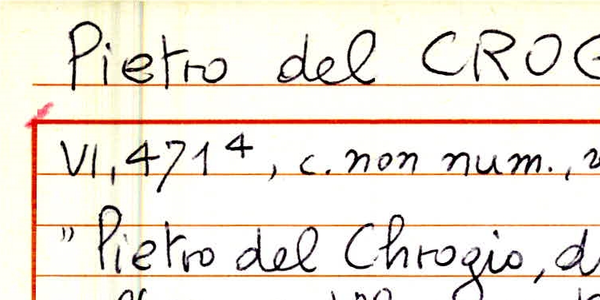 Pietro del CROG
VI, 471⁴, c. non num.,
" Pietro del Chrogio, d